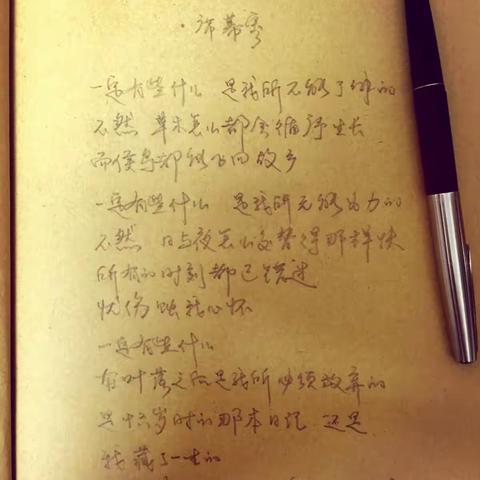 · 席慕蓉
一定有些什么 是我所不能了解的
不然 草木怎么都会循序生长
而候鸟都能飞回故乡
一定有些什么 是我所无能为力的
不然 日与夜怎么交替得那样快
所有的时刻都已错过
忧伤蚀我心怀
一定有些什么
在叶落之后是我所必须放弃的
是十六岁时的那本日记 还是
我藏了一生的